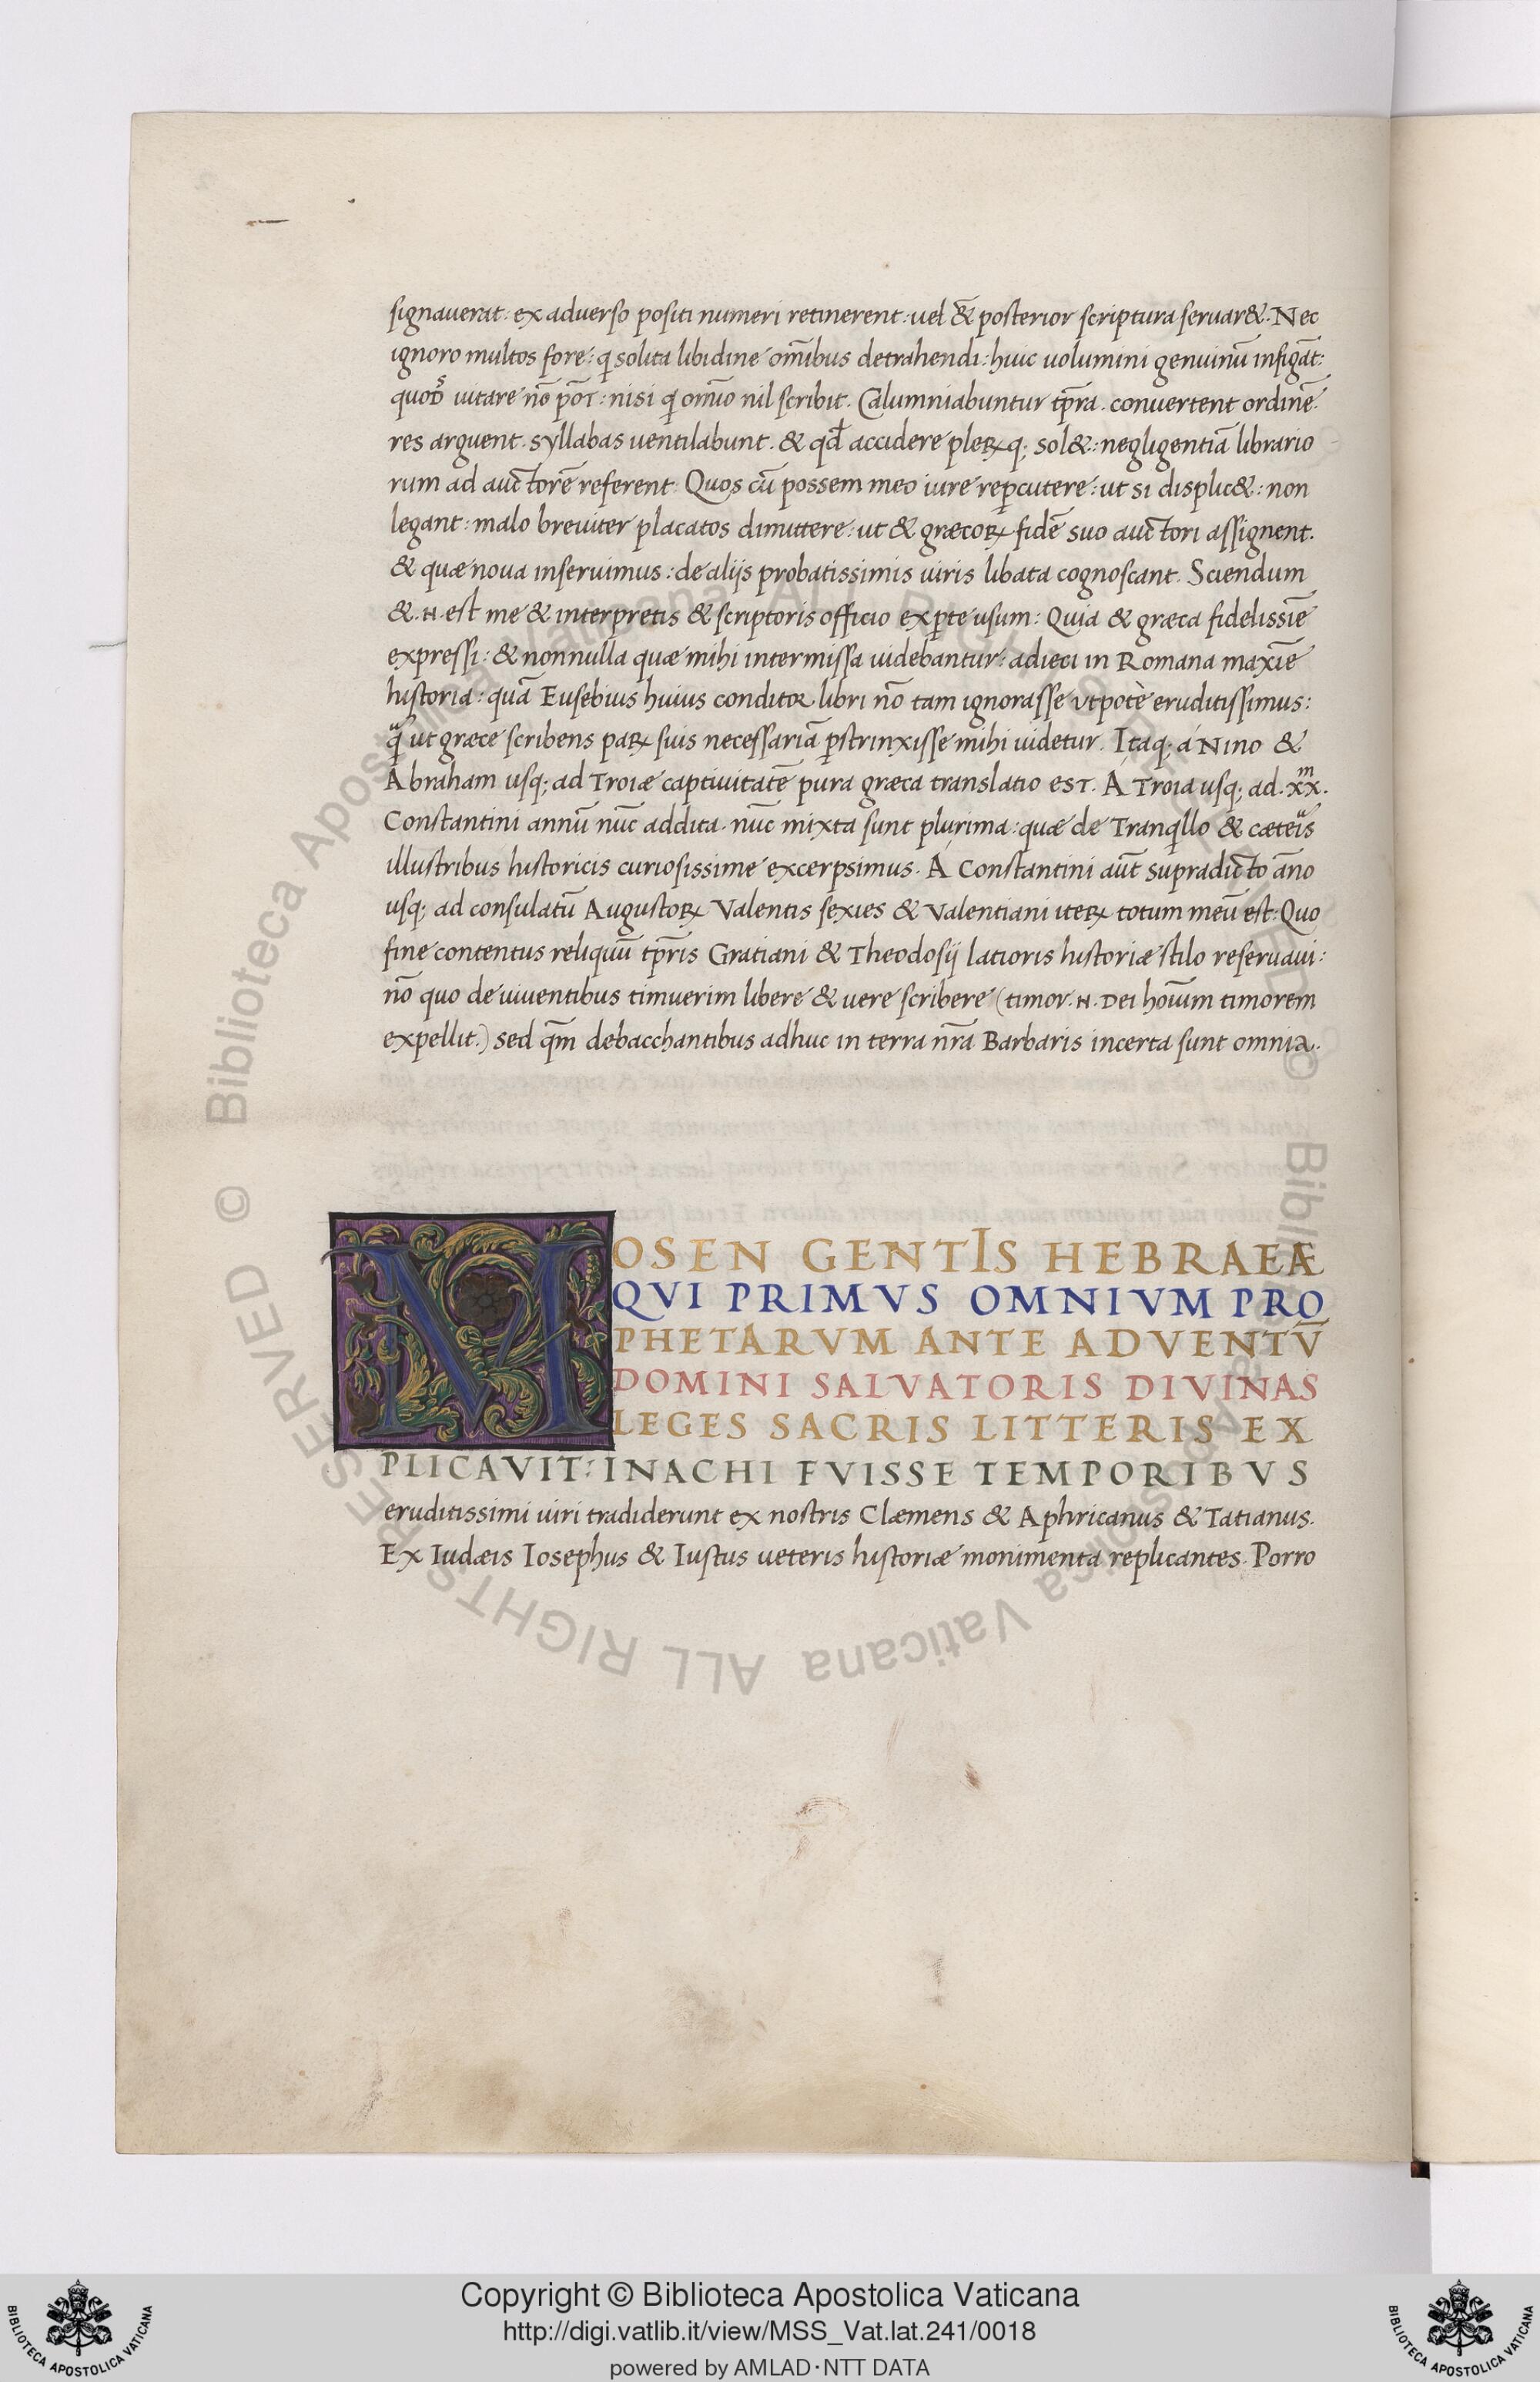 signauerat: ex aduerso positi numeri retinerent: uel &̄ posterior scriptura seruar&. Nec
ignoro multos fore: q̨ solita libidine om̄ibus detrahendi: huic uolumini genuinū infigāt:
uitare nō pōt: nisi q̨ om̄īo nil scribit. Calumniabuntur tp̄ra. conuertent ordinē.
res arguent. syllabas uentilabunt. & qđ accidere pleꝝq; sol&: negligentiā librario
rum ad auctorē referent. Quos cū possem meo iure reꝑcutere: ut si displic&: non
legant: malo breuiter placatos dimittere: ut & græcoꝝ fidē suo auctori assignent.
& quæ noua inseruimus: de alijs probatissimis uiris libata cognoscant. Sciendum
&. N. est me & interpretis & scriptoris officio ex ꝑte usum: Quia & græca fidelissīe
expressi: & nonnulla quæ mihi intermissa uidebantur: adieci in Romana maxīe
historia: quā Eusebius huius conditor libri nō tam ignorasse vtpotè eruditissimus:
ut græce scribens paꝝ suis necessariā ꝑstrinxisse mihi uidetur. Itaq; á Nino &
Abraham usq; ad Troiæ captiuitatē pura græca translatio est. Á Troia usq; ad .xxᵐ.
Constantini annū nūc addita. nūc mixta sunt plurima: quæ de Tranq̨llo & cæteris
illustribus historicis curiosissime excerpsimus. Á Constantini aūt supradicto āno
usq; ad consulatū Augustoꝝ Valentis sexies & Valentiani iteꝝ totum meū est: Quo
fine contentus reliquū tp̄ris Gratiani & Theodosij latioris historiæ stilo reseruaui:
nō quo de uiuentibus timuerim libere & uere scribere (timor .N. Dei hoīum timorem
expellit.) sed qm̄ debacchantibus adhuc in terra nr̄a Barbaris incerta sunt omnia.
MOSEN GENTIS HEBRAEÆ
QVI PRIMVS OMNIVM PRO
PHETARVM ANTE ADVENTV̄
DOMINI SALVATORIS DIVINAS
LEGES SACRIS LITTERIS EX
PLICAVIT: INACHI FVISSE TEMPORIBVS
eruditissimi uiri tradiderunt ex nostris Clæmens & Aphricanus & Tatianus.
Ex Iudæis Iosephus & Iustus ueteris historiæ monimenta replicantes. Porro
© Biblioteca Apostolica Vaticana ALL RIGHTS RESERVED
Copyright © Biblioteca Apostolica Vaticana
http://digi.vatlib.it/view/MSS_Vat.lat.241/0018
powered by AMLAD·NTT DATA
BIBLIOTECA APOSTOLICA VATICANA
BIBLIOTECA APOSTOLICA VATICANA